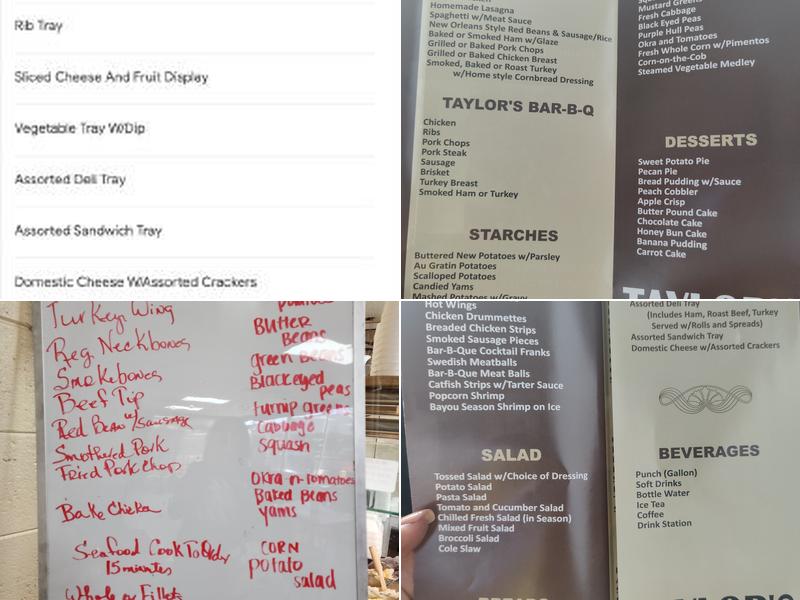 Rib Tray
Sliced Cheese And Fruit Display
Vegetable Tray W/Dip
Assorted Deli Tray
Assorted Sandwich Tray
Domestic Cheese W/Assorted Crackers
Homemade Lasagna
Spaghetti w/Meat Sauce
New Orleans Style Red Beans & Sausage/Rice
Baked or Smoked Ham w/Glaze
Grilled or Baked Pork Chops
Grilled or Baked Chicken Breast
Smoked, Baked or Roast Turkey
w/Home style Cornbread Dressing
TAYLOR'S BAR-B-Q
Chicken
Ribs
Pork Chops
Pork Steak
Sausage
Brisket
Turkey Breast
Smoked Ham or Turkey
STARCHES
Buttered New Potatoes w/Parsley
Au Gratin Potatoes
Scalloped Potatoes
Candied Yams
Mashed Potatoes w/Gravy
Mustard Greens
Fresh Cabbage
Black Eyed Peas
Purple Hull Peas
Okra and Tomatoes
Fresh Whole Corn w/Pimentos
Corn-on-the-Cob
Steamed Vegetable Medley
DESSERTS
Sweet Potato Pie
Pecan Pie
Bread Pudding w/Sauce
Peach Cobbler
Apple Crisp
Butter Pound Cake
Chocolate Cake
Honey Bun Cake
Banana Pudding
Carrot Cake
TAYLOR'S
Turkey Wing
Reg. Neckbones
Smokebones
Beef Tip
Red Bean w/Sausage
Smothered Pork
Fried Pork Chops
Bake Chicken
Seafood Cook To Order
15 minutes
Whole or Fillets
Butter
Beans
green Beans
Blackeyed
peas
turnip greens
Cabbage
Squash
Okra-n-tomatoes
Baked Beans
yams
CORN
potato
salad
Hot Wings
Chicken Drummettes
Breaded Chicken Strips
Smoked Sausage Pieces
Bar-B-Que Cocktail Franks
Swedish Meatballs
Bar-B-Que Meat Balls
Catfish Strips w/Tarter Sauce
Popcorn Shrimp
Bayou Season Shrimp on Ice
SALAD
Tossed Salad w/Choice of Dressing
Potato Salad
Pasta Salad
Tomato and Cucumber Salad
Chilled Fresh Salad (in Season)
Mixed Fruit Salad
Broccoli Salad
Cole Slaw
BREADS
Assorted Deli Tray
(Includes Ham, Roast Beef, Turkey
Served w/Rolls and Spreads)
Assorted Sandwich Tray
Domestic Cheese w/Assorted Crackers
BEVERAGES
Punch (Gallon)
Soft Drinks
Bottle Water
Ice Tea
Coffee
Drink Station